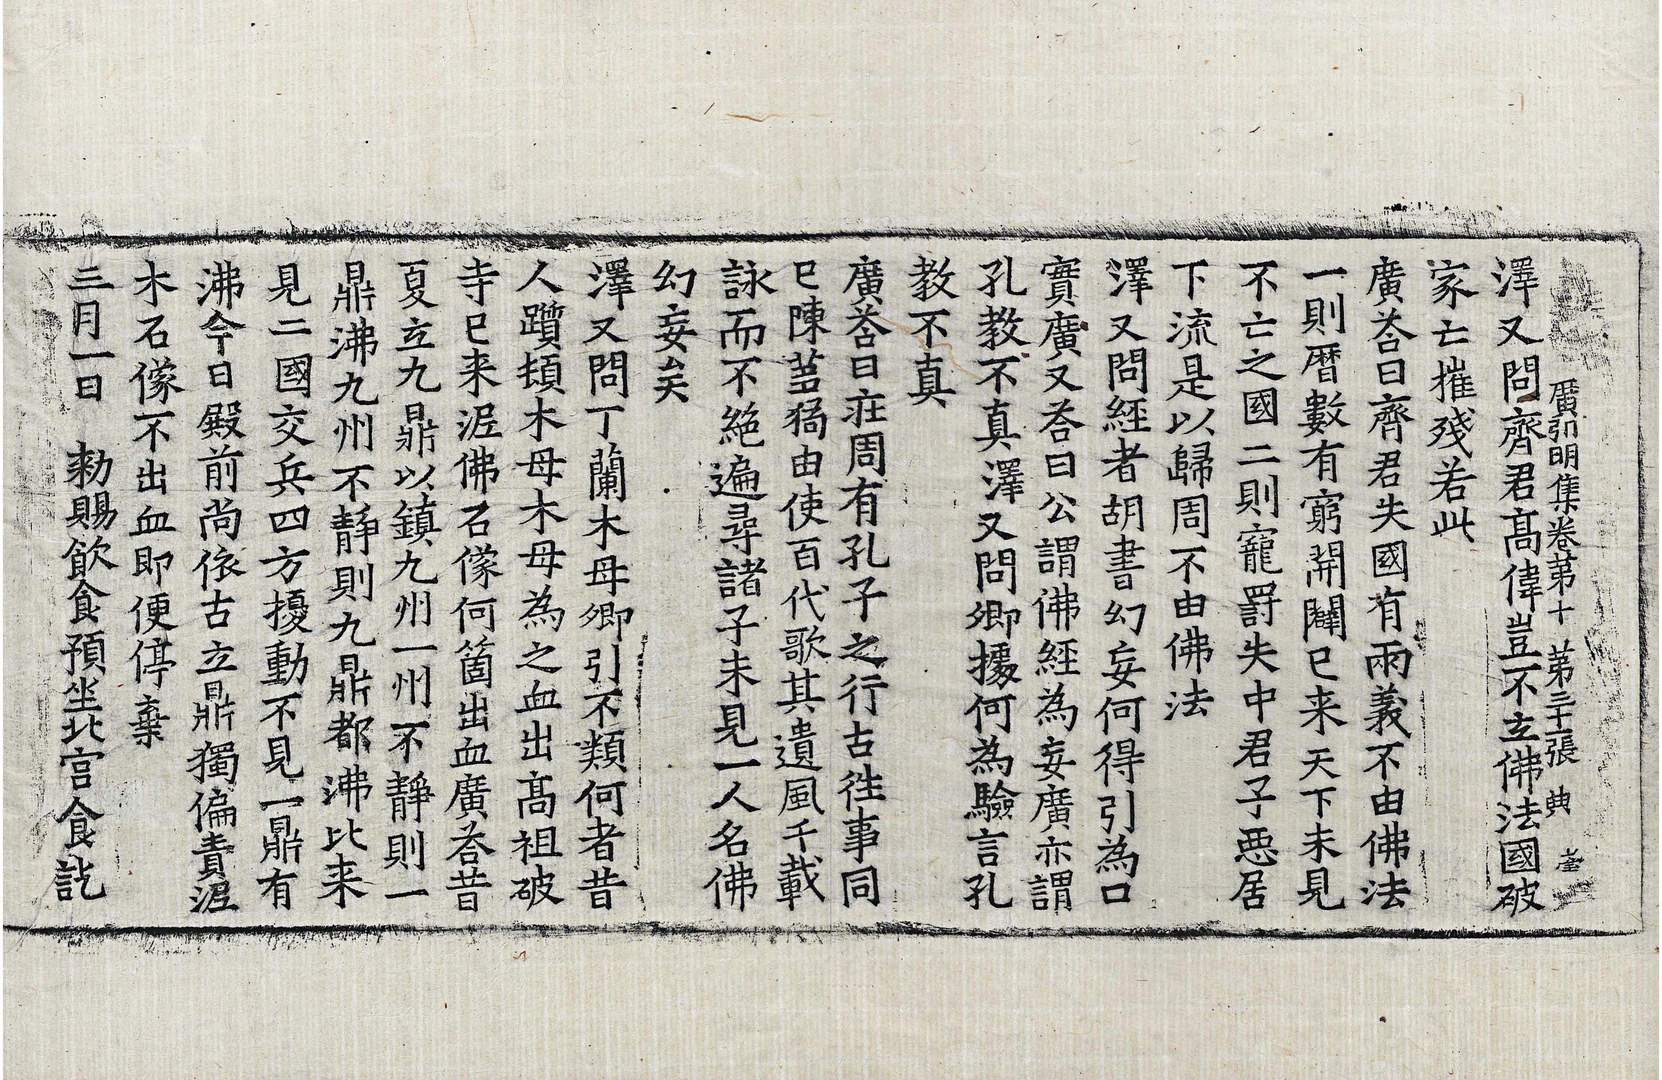 廣弘明集卷第十 第三十二張 典
澤又問齊君高偉豈不立佛法國破
家亡摧殘若此
廣荅曰齊君失國有兩義不由佛法
一則曆數有窮開闢已来天下未見
不亡之國二則寵罸失中君子惡居
下流是以歸周不由佛法
澤又問經者胡書幻妄何得引為口
實廣又荅曰公謂佛經為妄廣亦謂
孔教不真澤又問卿據何為驗言孔
教不真
廣荅曰荘周有孔子之行古徃事同
已陳蒭猗由使百代歌其遺風千載
詠而不絕遍尋諸子未見一人名佛
幻妄矣
澤又問丁蘭木母卿引不類何者昔
人躓頓木母木母為之血出高祖破
寺已来泥佛石像何箇出血廣荅昔
夏立九鼎以鎮九州一州不靜則一
鼎沸九州不靜則九鼎都沸比来
見二國交兵四方擾動不見一鼎有
沸今日殿前尚依古立鼎獨偏責泥
木石像不出血即便停棄
三月一日 勑賜飲食預坐北宫食訖